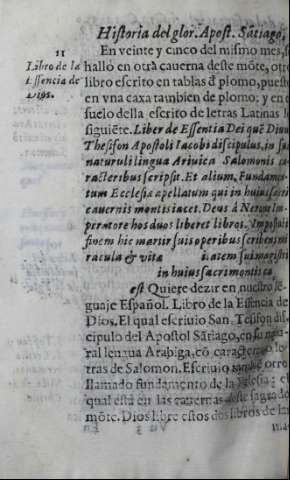 Historia del glor. Apost. Sātiago,
11
Libro de la
Essencia de
Dios.
En veinte y cinco del mismo mes, se
hallò en otra cauerna deste mōte, otro
libro escrito en tablas đ plomo, puesto
en vna caxa tambien de plomo; y en el
suelo della escrito de letras Latinas lo
siguiēte. Liber de Essentia Dei quē Diuus
Thesifon Apostoli Iacobi discipulus, in sua
naturuli lingua Ariuica Salomonis ca
racteribus scripsit. Et alium, Fundamen
tum Ecclesiæ apellatum qui in huius sacri
cauernis montis iacet. Deus á Nerone Im-
peratore hos duos liberet libros. Imposuit
finem hic martir suis operibus scribens mi
racula & vita
in huius sacri montis ca
est Quiere dezir en nuestro le-
guaje Español. Libro de la Essencia de
Dios. El qual escriuio San Tesifon dis-
cipulo del Apostol Sātiago, en su natu-
ral lengua Arabiga, cō caracteres o le-
tras de Salomon. Escriuio tambiē otro
llamado fundamento de la Iglesia: el
qual està en las cauernas deste sagrado
mōte. Dios libre estos dos libros de las
ma-